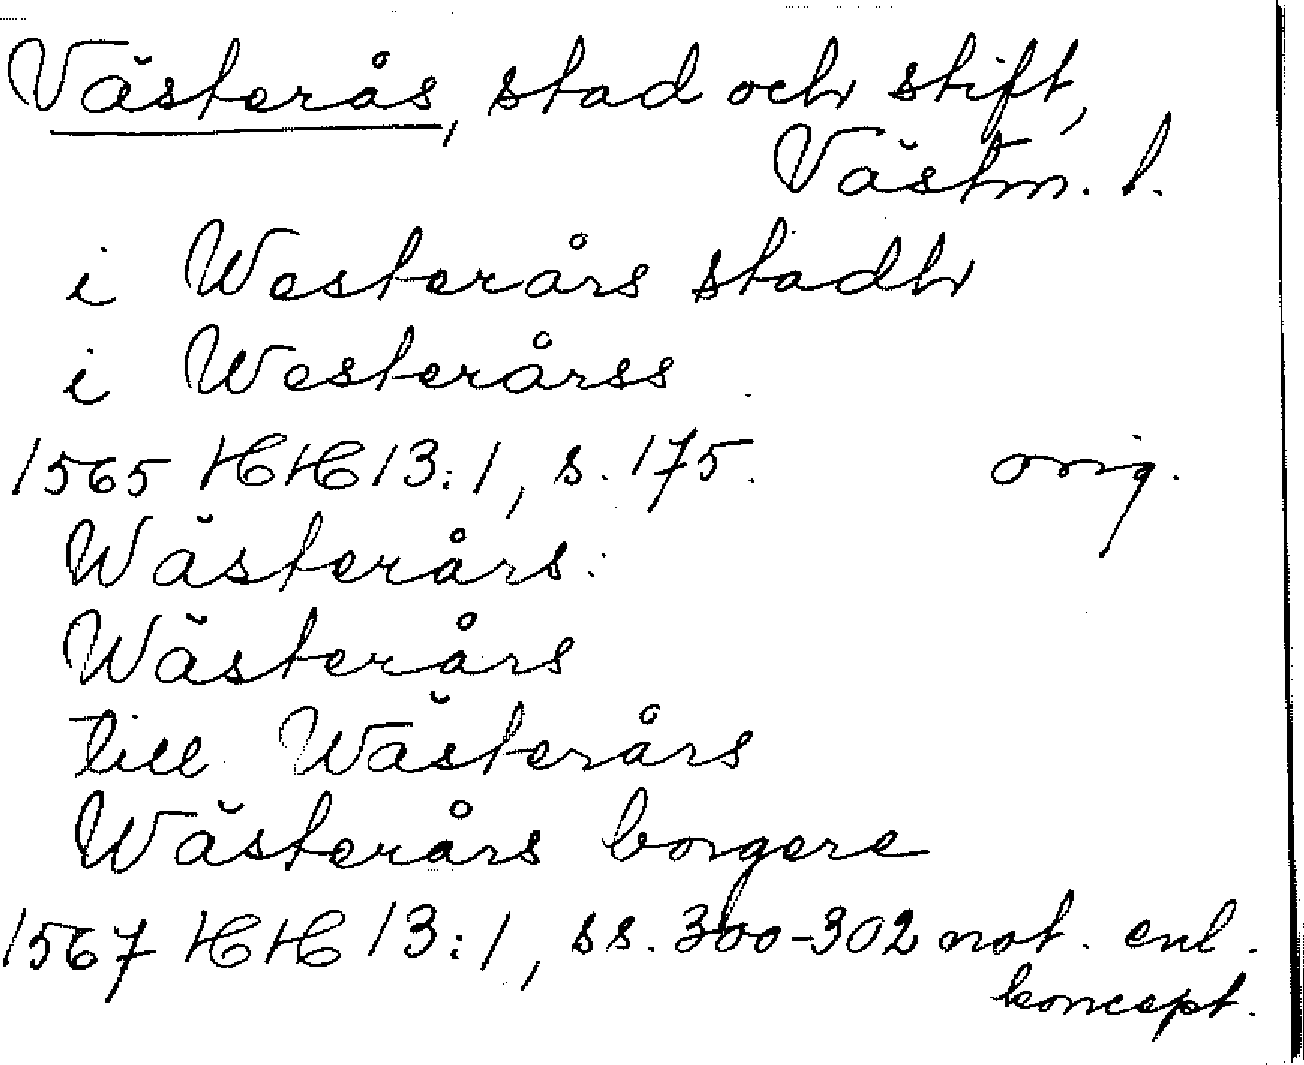 Västerås, stad och stift,
Västm. l.
i Westerårs stadh
i Westerårss
1565 HH 13:1, s. 175. orig.
Wästerårs.
Wästerårs
till Wästerårs
Wästerårs borgere
1567 HH 13:1, ss. 300-302 not. enl.
koncept.